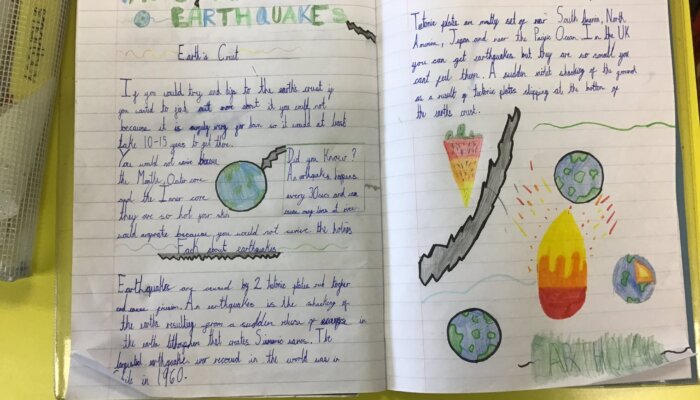 EARTHQUAKES
Earth's Crust
If you would try and dip to the earths crust if
you wanted to find out more about it you could not
because it is very far down so it would at least
take 10-15 years to get there.
You would not survive because
the Mantle, Outer core
and the Inner core
they are so hot your skin
would evaporate because you would not survive the hotness
Did you Know?
An earthquake happens
every 30secs and
Facts about earthquakes
Earthquakes are caused by 2 tectonic plates rub together
and cause friction. An earthquakes is the shacking of
the earths resulting from a sudden release of energy in
the earth lithosphere that creates Seismic waves. The
largest earthquake ever record in the world was in
Chile in 1960.
Tectonic plate are mostly set of near South America, North
America, Japan and near the Pacific Ocean. In the UK
you can get earthquakes but they are so small you
cant feel them. A sudden violent shacking of the ground
as a result of tectonic plates slipping at the bottom of
the earths crust.
EARTHQUAKE